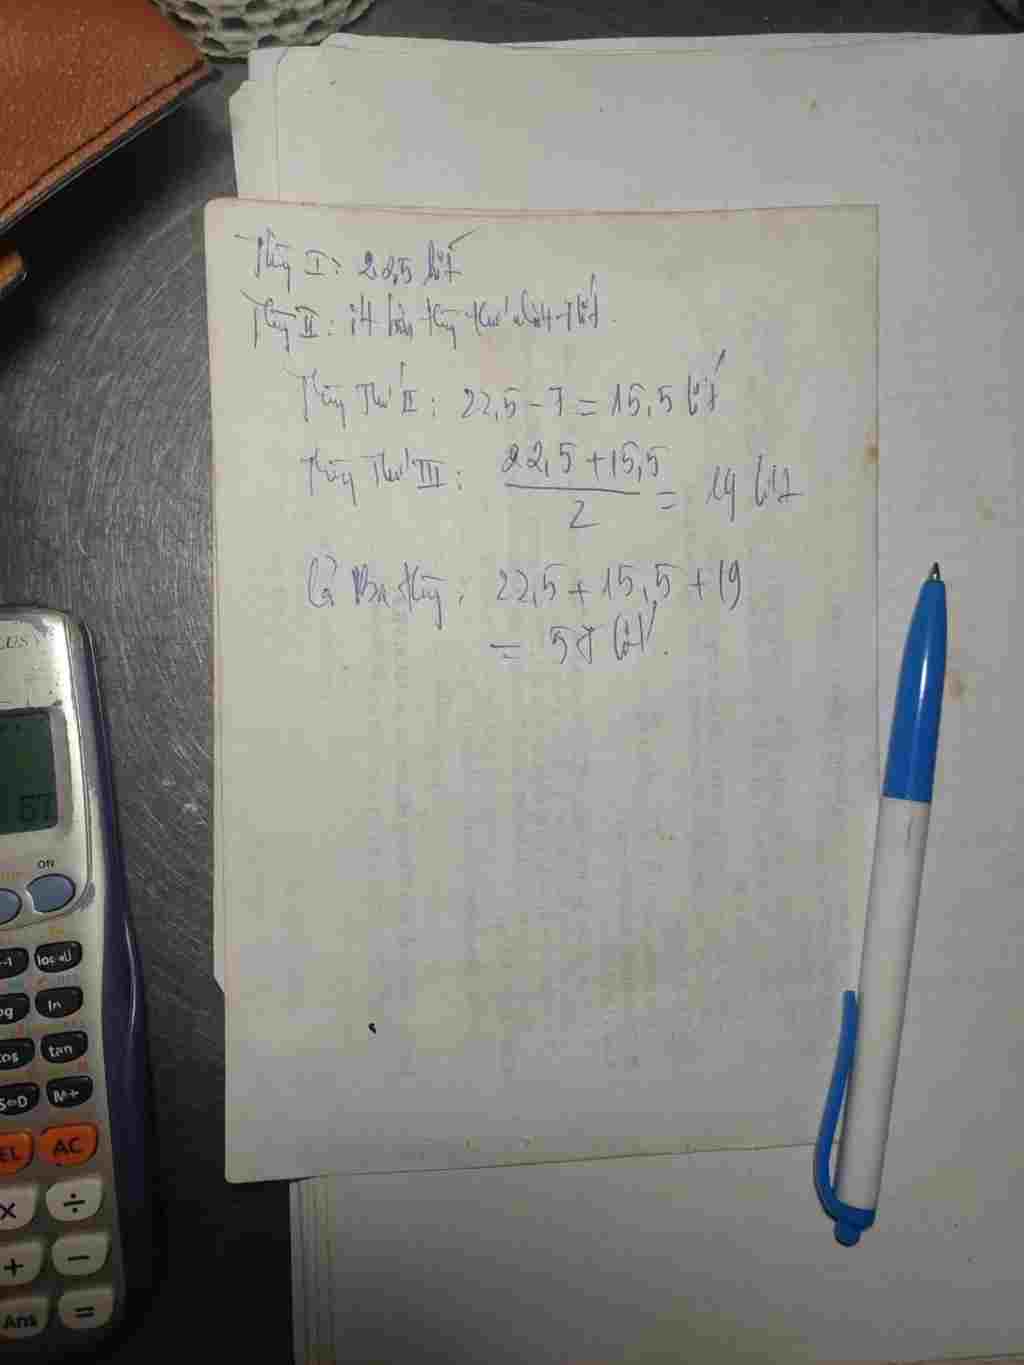 Thùng I: 22,5 lít
Thùng II: ít hơn thùng thứ nhất 7 lít.
Thùng Thứ II: 22,5 - 7 = 15,5 lít
Thùng Thứ III: 22,5 + 15,5 / 2 = 19 lít
Cả Ba thùng: 22,5 + 15,5 + 19
= 57 lít.
57
ON
ln
tan
M+
AC
×
÷
+
−
Ans
=